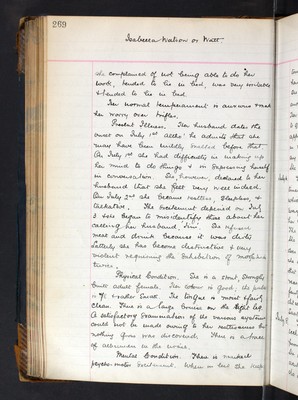 269
Isabella Watson or Watt
she complained of not being able to do her
work, tended to lie in bed, was very irritable
& tended to lie in bed.
Her normal temperament is anxious
her worry over trifles.
Present Illness. Her husband dates the
onset on July 1st altho' he admits that she
may have been mildly before that.
On July 1st she had difficulty in making up
her mind to do things & in expressing herself
in conversation. She, however, declared to her
husband that she felt very well indeed.
On July 2nd she became restless, sleepless, &
talkative. The excitement deepened on July
3 & she began to misidentify those about her
calling her husband, She refused
meat and drink because it was
Latterly she has become obstructive & very
violent requiring the exhibition of morphia
twice.
Physical Condition. She is a stout strongly
built adult female. Her colour is good, the pulse
is The tongue is moist & fairly
clean. There is a large bruise on the left leg.
A satisfactory examination of the various systems
could not be made owing to her restlessness but
nothing gross was discovered. There is a trace
of albumen in the urine.
Mental Condition. There is marked
psycho-motor excitement. When in bed she